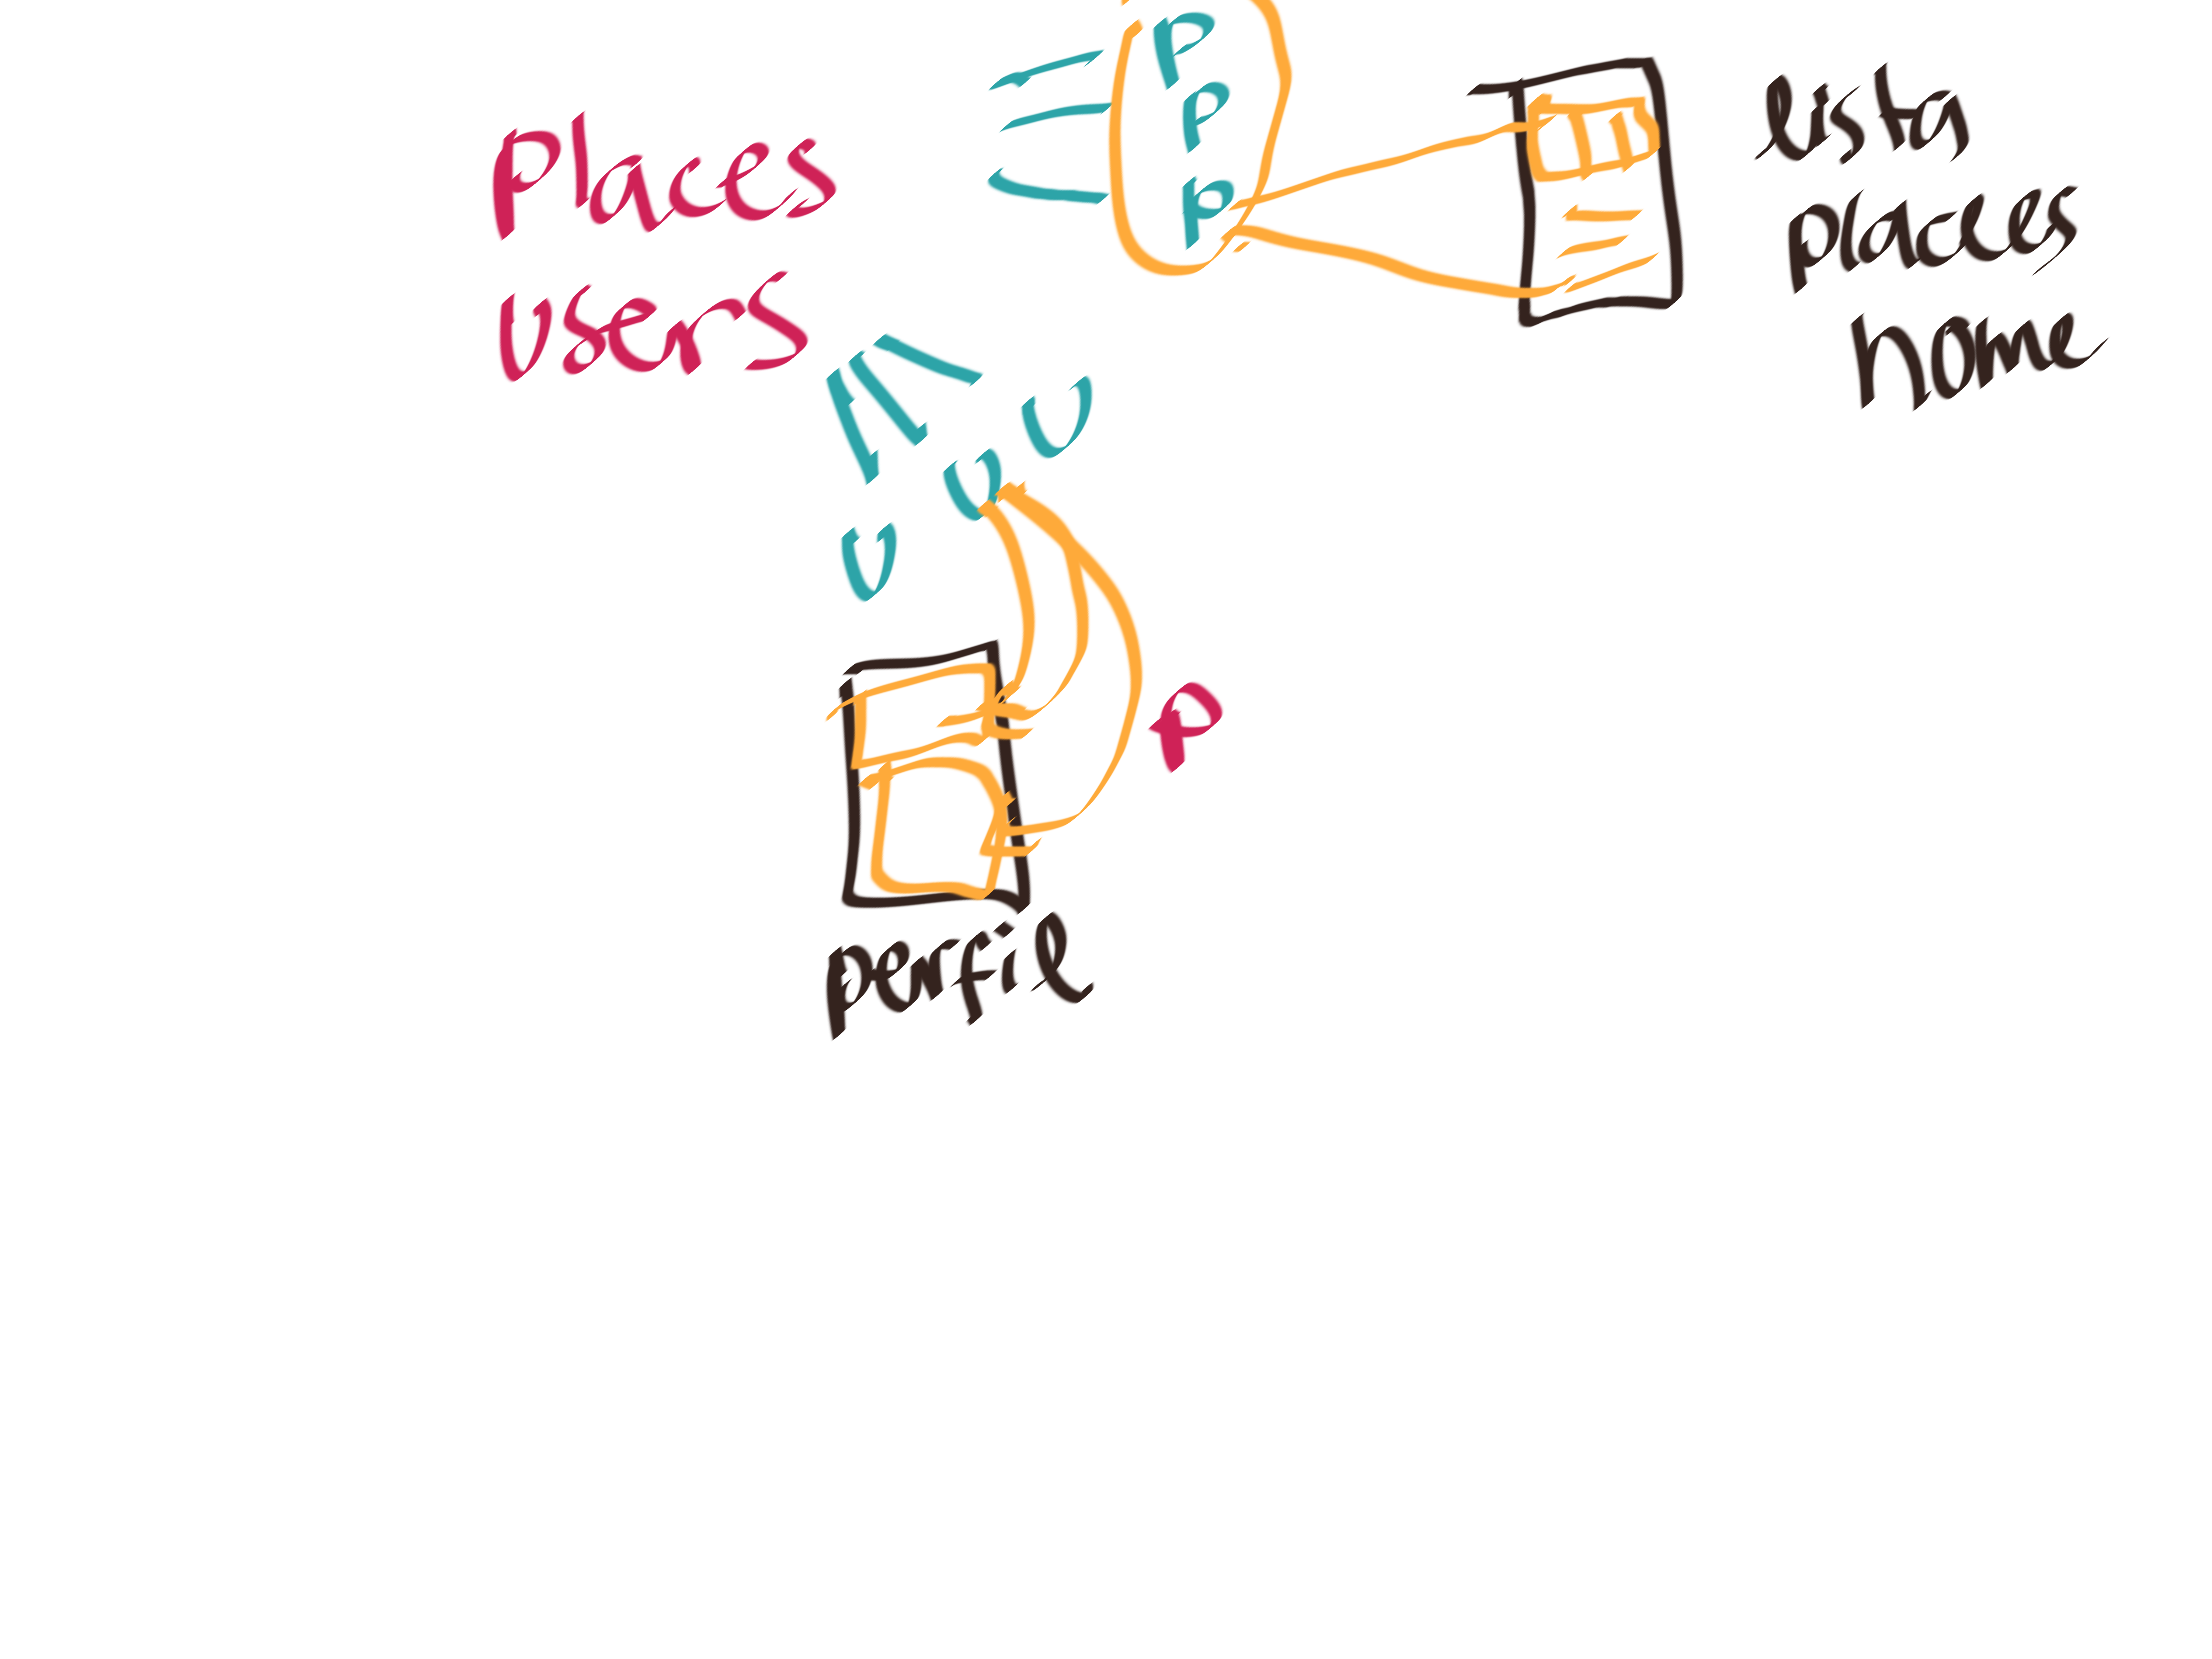 places
users
P
P
P
lista
places
home
U
U
U
P
perfil